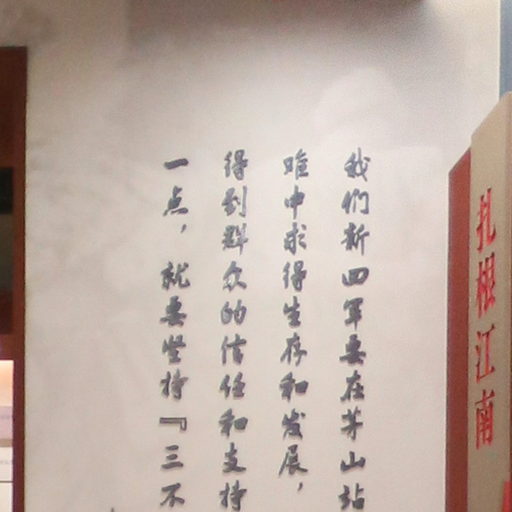 我们新四军要在茅山站
难中求得生存和发展，
得到群众的信任和支持
一点，就要坚持『三不
扎根江南